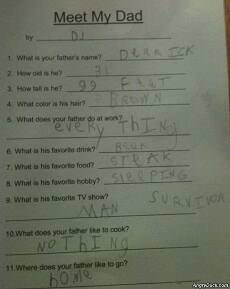 Meet My Dad
by DJ
1. What is your father's name? DERRICK
2. How old is he? 31
3. How tall is he? 99 FEET
4. What color is his hair? BROWN
5. What does your father do at work?
everything
6. What is his favorite drink? BEER
7. What is his favorite food? STEAK
8. What is his favorite hobby? SLEEPING
9. What is his favorite TV show? SURVIVOR
MAN
10. What does your father like to cook?
NOTHING
11. Where does your father like to go?
home
AngryDuck.com